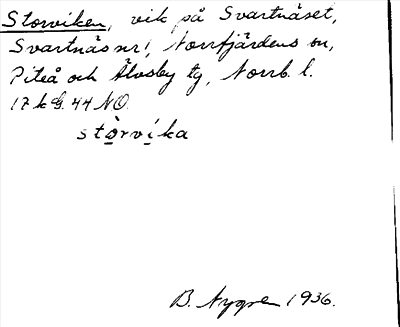 Storviken, vik på Svartnäset,
Svartnäs nr 1, Norrfjärdens sn,
Piteå och Älvsby tg, Norrb. l.
17 k G. 44 NO.
stòrvi̱ka
B. Nygren 1936.